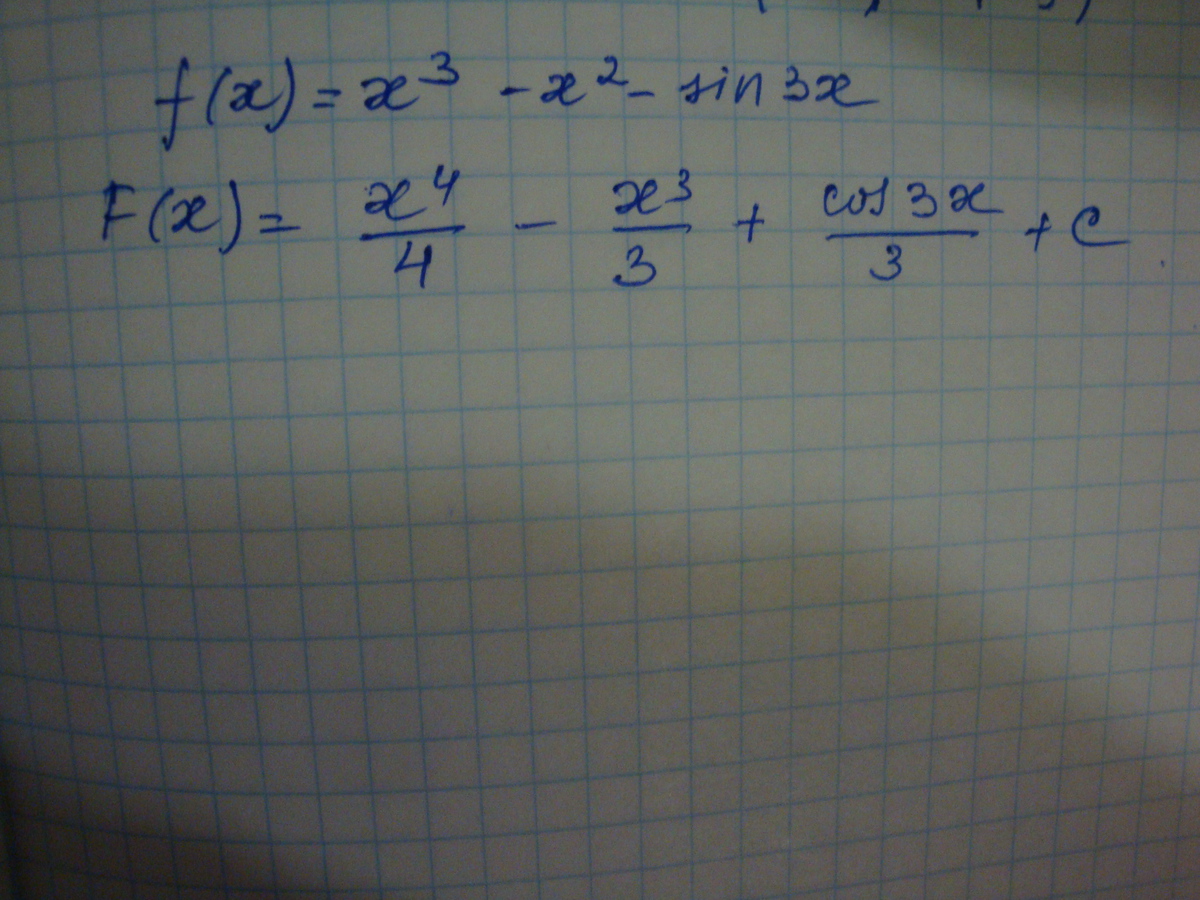 f(x) = x³ - x² - sin 3x
F(x) = x⁴/4 - x³/3 + cos 3x/3 + C